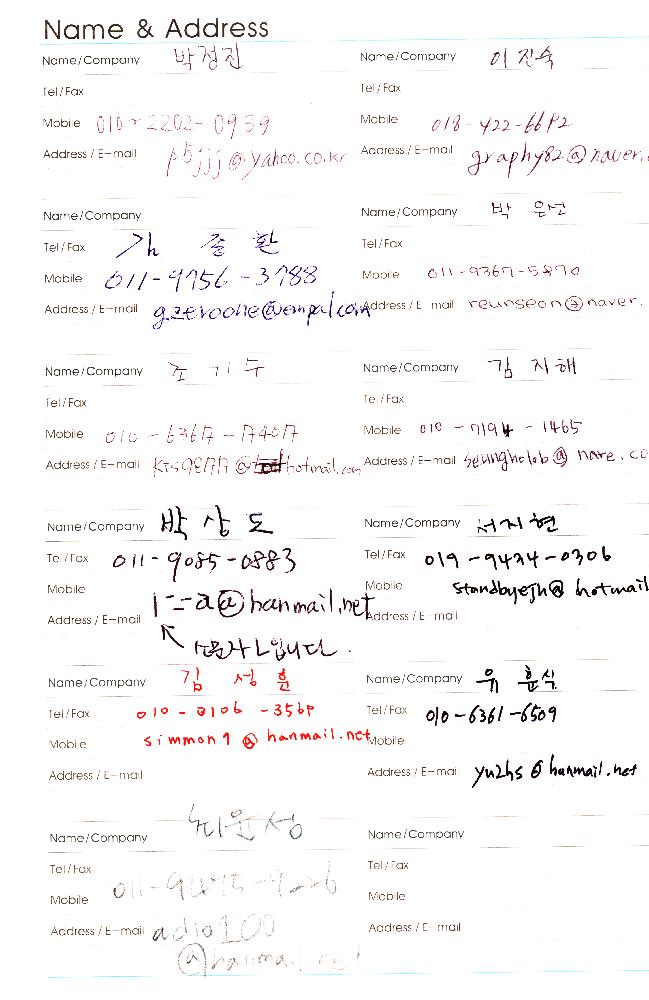 Name & Address
Name/Company 박정진
Tel/Fax
Mobile 010-2202-0939
Address / E-mail pbjjj@yahoo.co.kr
Name/Company 이진숙
Tel/Fax
Mobile 018-422-6692
Address / E-mail graphy82@naver.
Name/Company
Tel/Fax 종환
Mobile 011-9756-3788
Address / E-mail gzeroone@empal.com
Name/Company 박은선
Tel/Fax
Mobile 011-9367-5890
Address / E-mail reunseon@naver.
Name/Company 조기수
Tel/Fax
Mobile 010-6367-7407
Address / E-mail hotmail.com
Name/Company 김지해
Tel/Fax
Mobile 010-7194-1465
Address / E-mail seungholab@nate.co
Name/Company 박상도
Tel/Fax 011-9085-0883
Mobile
Address / E-mail @hanmail.net
입니다.
Name/Company 서지현
Tel/Fax 019-9434-0306
Mobile standbyejh@hotmail
Address / E-mail
Name/Company 김성훈
Tel/Fax 010-3106-356
Mobile simmon1@hanmail.net
Address / E-mail
Name/Company 유훈식
Tel/Fax 010-6361-6509
Mobile
Address / E-mail yu2hs@hanmail.net
Name/Company
Tel/Fax
Mobile
Address / E-mail adio100
@hanmail.net
Name/Company
Tel/Fax
Mobile
Address / E-mail